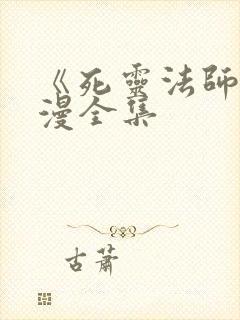 《死靈法師
漫全集
古蕭